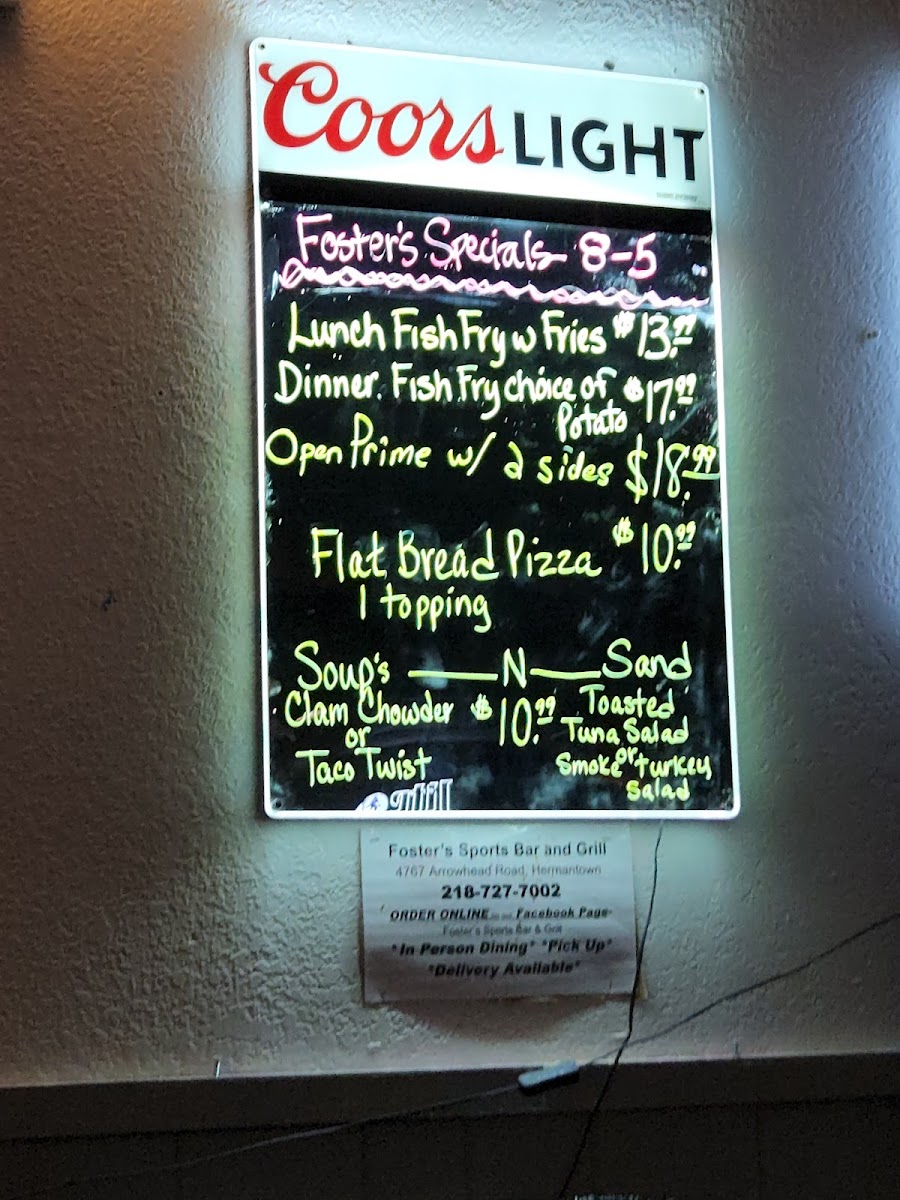 Coors LIGHT
Foster's Specials 8-5
Lunch Fish Fry w Fries $13.99
Dinner. Fish Fry choice of Potato $17.99
Open Prime w/ 2 sides $18.99
Flat Bread Pizza $10.99
1 topping
Soup's — N — Sand
Clam Chowder $10.99 Toasted
or Tuna Salad
Taco Twist or
Smoke turkey
Salad
Foster's Sports Bar and Grill
4767 Arrowhead Road, Hermantown
218-727-7002
ORDER ONLINE Facebook Page-
Foster's Sports Bar & Grill
*In Person Dining* *Pick Up*
*Delivery Available*